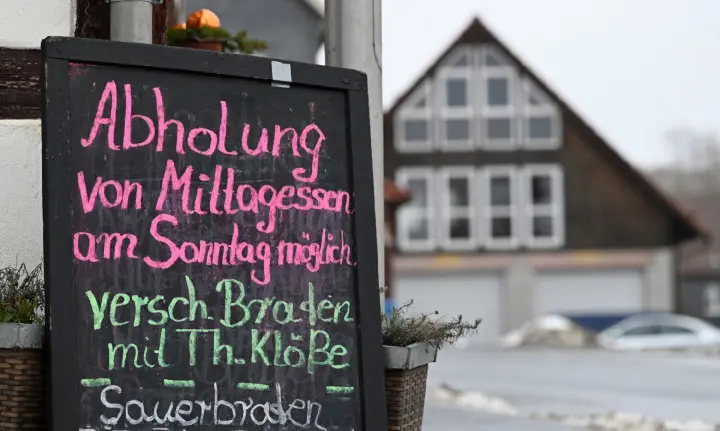 Abholung
von Mittagessen
am Sonntag möglich
versch. Braten
mit Th. Klöße
Sauerbraten